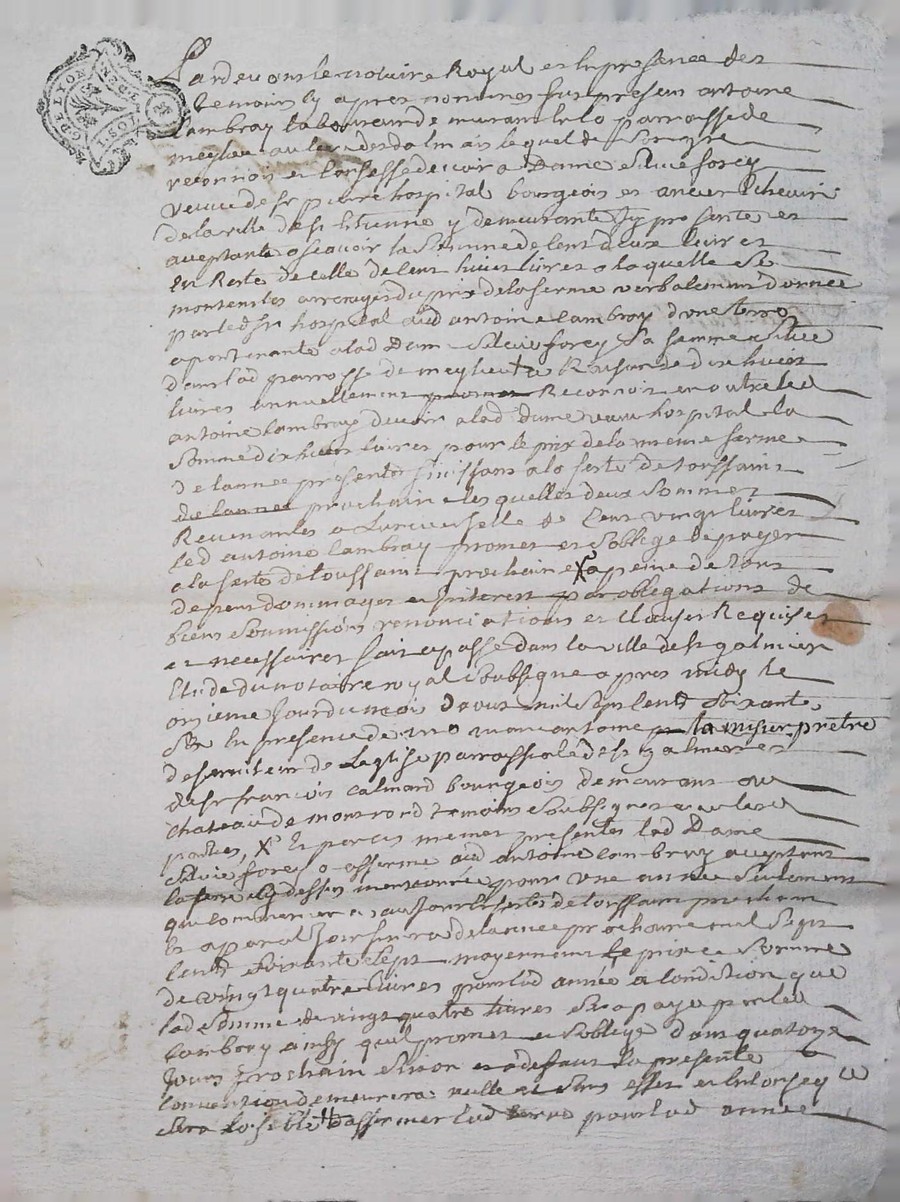 GDE LYON
Pardevant le notaire Royal et en presence des
temoins cy apres nommes fut present antoine
Cambray laboureur de parroisse de
meylieu lequel de Son gre
reconnoit et Confesse devoir a Dame Silvie forey
veuve de sr pierre hospital bourgeois et ancien Echevin
de la ville de st Etienne y demeurante Icy presente et
aceptante a scavoir la Somme de Cent deux livres
En Reste de celle de Cent huit livres a laquelle Se
montent les arrerages du prix de la ferme verballement donnée
par led sr hospital aud antoine Cambray d'une terre
apartenante a lad Dame Silvie forey Sa femme Située
dans lad parroisse de meylieu a Raison de dix huit
livres annuellement Reconnoit en outre led
antoine Cambray devoir a lad dame veuve hospital la
Somme dix huit livres pour le prix de la meme ferme
de lannée presente finissant a la feste de toussaint
de lannee prochaine lesquelles deux Sommes
Revenantes a Celle de Cent vingt livres
led antoine Cambray promet et Soblige de payer
a la feste de toussaint prochaine X a peine de tous
depens dommages et Interest par obligations de
biens Soumissions renonciations et Clauses Requises
et necessaires fait et passé dans la ville de st galmier
Etude du notaire royal Soubsigne apres midy le
onzieme Jour du mois d'aout mil Sept Cent Soixante
Six En presence de antoine prêtre
desserviteur de Leglise parroissiale de st galmier et
de sr françois Calmard bourgeois demeurant au
chateau de montrond temoins Soubsignes avec les
parties, X Et par ces memes presentes lad Dame
Silvie forey a affermé aud antoine Cambray aceptant
la terre cy dessus mentionnée pour une année Seulement
qui commencera au Jour et feste de toussaint prochain
Et a pareil Jour finira de lannée prochaine mil Sept
Cent Soixante Sept moyennant le prix et Somme
de vingt quatre livres pour lad année a Condition que
lad Somme de vingt quatre livres Sera payé par led
Cambray ainsy quil promet et Soblige dans quatorze
Jours prochain Sinon et a defaut la presente
Convention demeurera nulle et Sans effet et lad forey
Sera loisible daffermer lad terre pour lad année